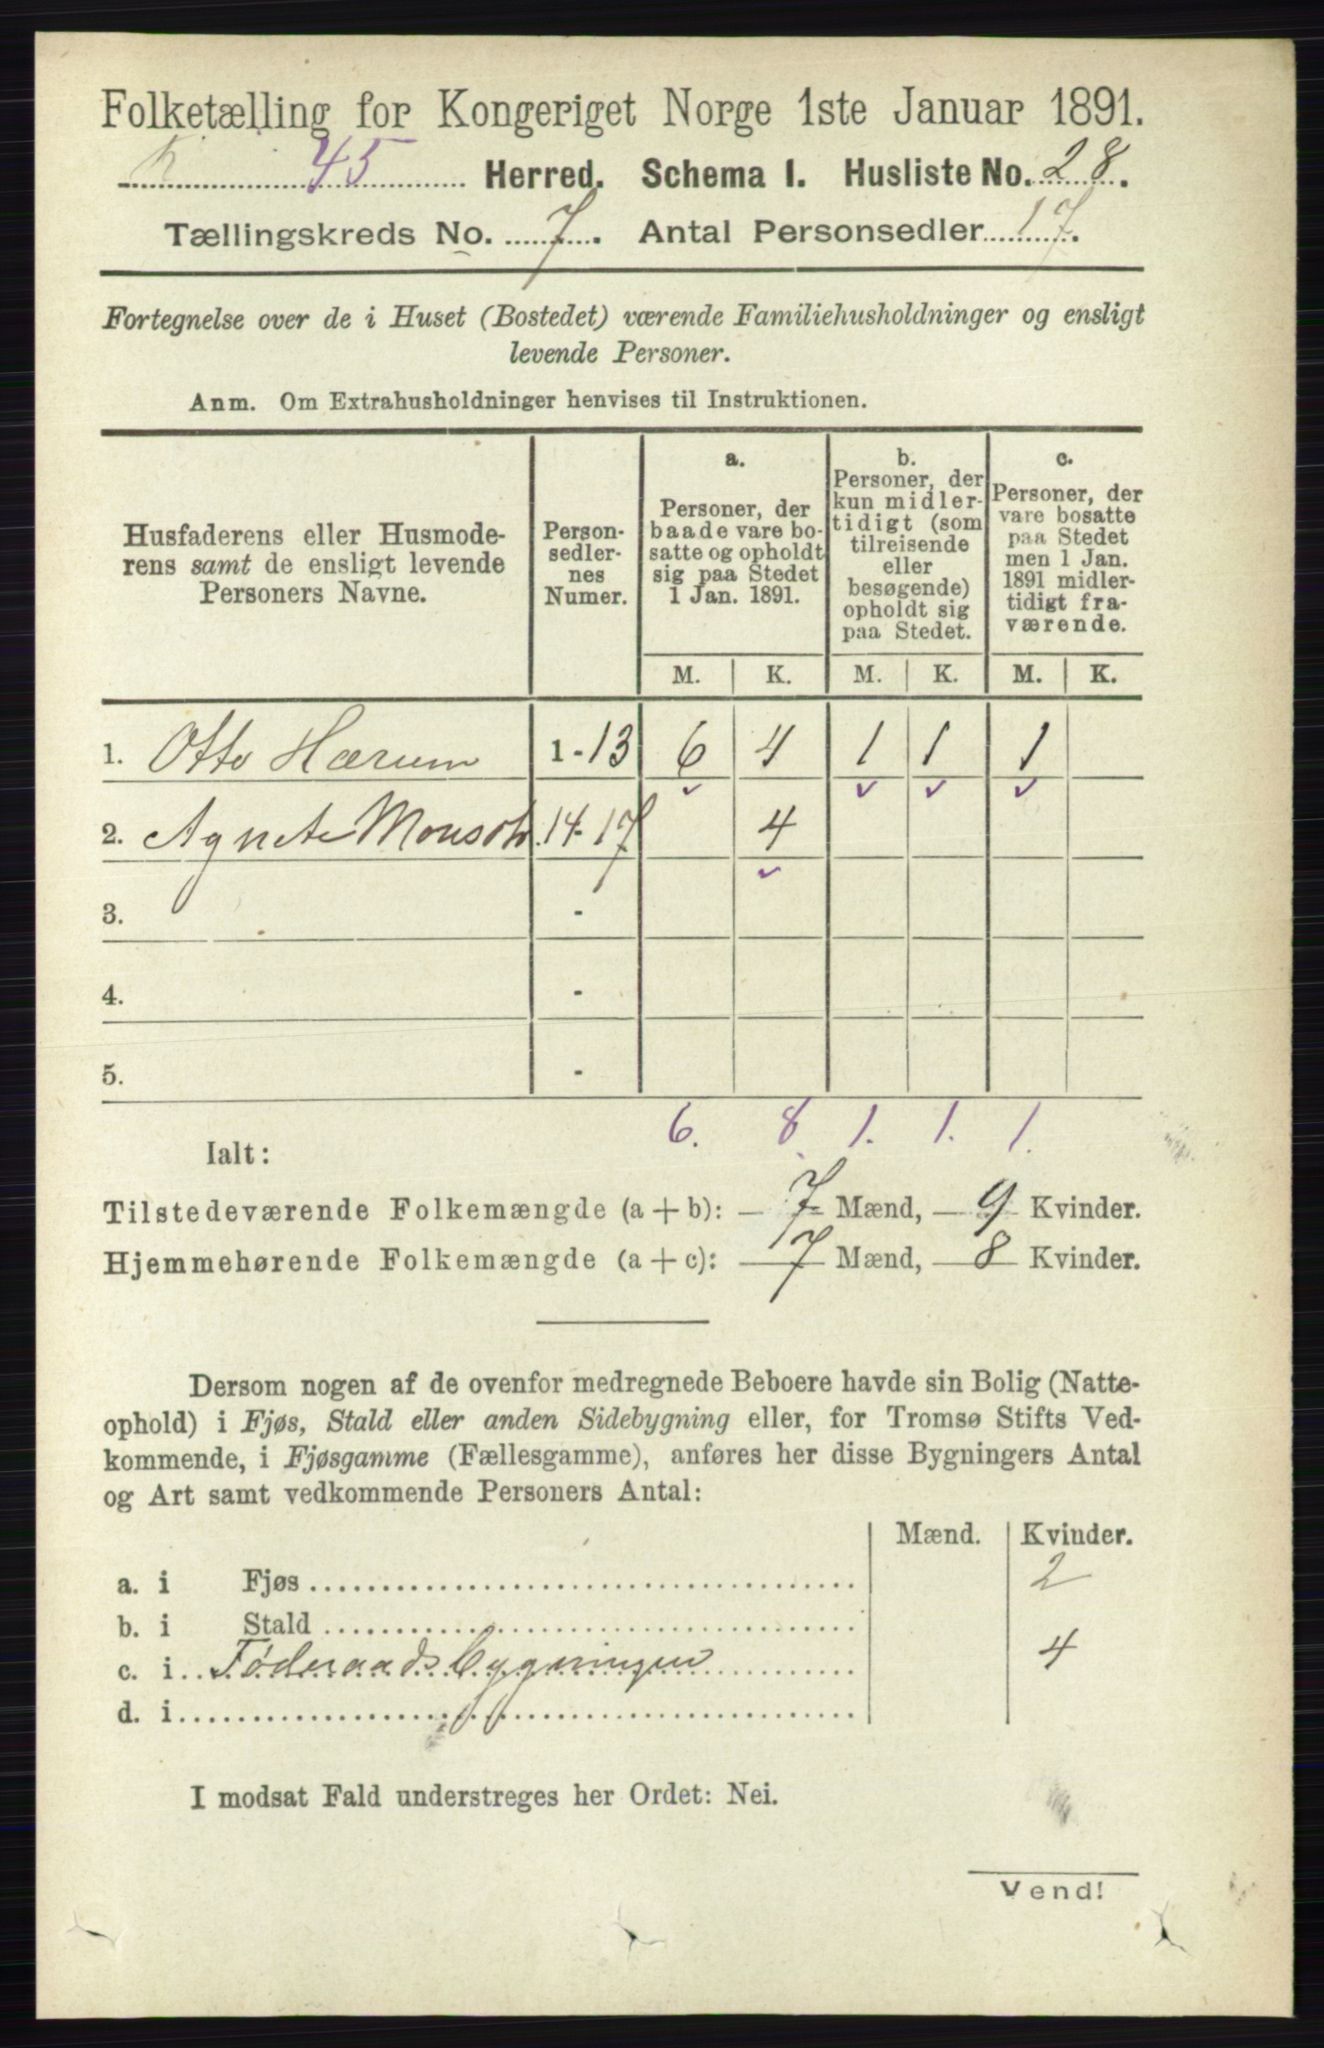 Folketælling for Kongeriget Norge 1ste Januar 1891.
45 Herred. Schema I. Husliste No. 28.
Tællingskreds No. 7. Antal Personsedler 17.
Fortegnelse over de i Huset (Bostedet) værende Familiehusholdninger og ensligt
levende Personer.
Anm. Om Extrahusholdninger henvises til Instruktionen.
Husfaderens eller Husmode-
rens samt de ensligt levende
Personers Navne.
Person-
sedler-
nes
Numer.
a.
Personer, der
baade vare bo-
satte og opholdt
sig paa Stedet
1 Jan. 1891.
b.
Personer, der
kun midler-
tidigt (som
tilreisende
eller
besøgende)
opholdt sig
paa Stedet.
c.
Personer, der
vare bosatte
paa Stedet
men 1 Jan.
1891 midler-
tidigt fra-
værende.
M. K. M. K. M. K.
1. Otto Hærum 1-13 6 4 1 1 1
2. Agnete 14-17 4
3. -
4. -
5. -
6. 8. 1. 1. 1.
Ialt:
Tilstedeværende Folkemængde (a + b): 7 Mænd, 9 Kvinder.
Hjemmehørende Folkemængde (a + c): 7 Mænd, 8 Kvinder.
Dersom nogen af de ovenfor medregnede Beboere havde sin Bolig (Natte-
ophold) i Fjøs, Stald eller anden Sidebygning eller, for Tromsø Stifts Ved-
kommende, i Fjøsgamme (Fællesgamme), anføres her disse Bygningers Antal
og Art samt vedkommende Personers Antal:
Mænd. Kvinder.
a. i Fjøs 2
b. i Stald
c. i Føderaadsbygningen 4
d. i
I modsat Fald understreges her Ordet: Nei.
Vend!